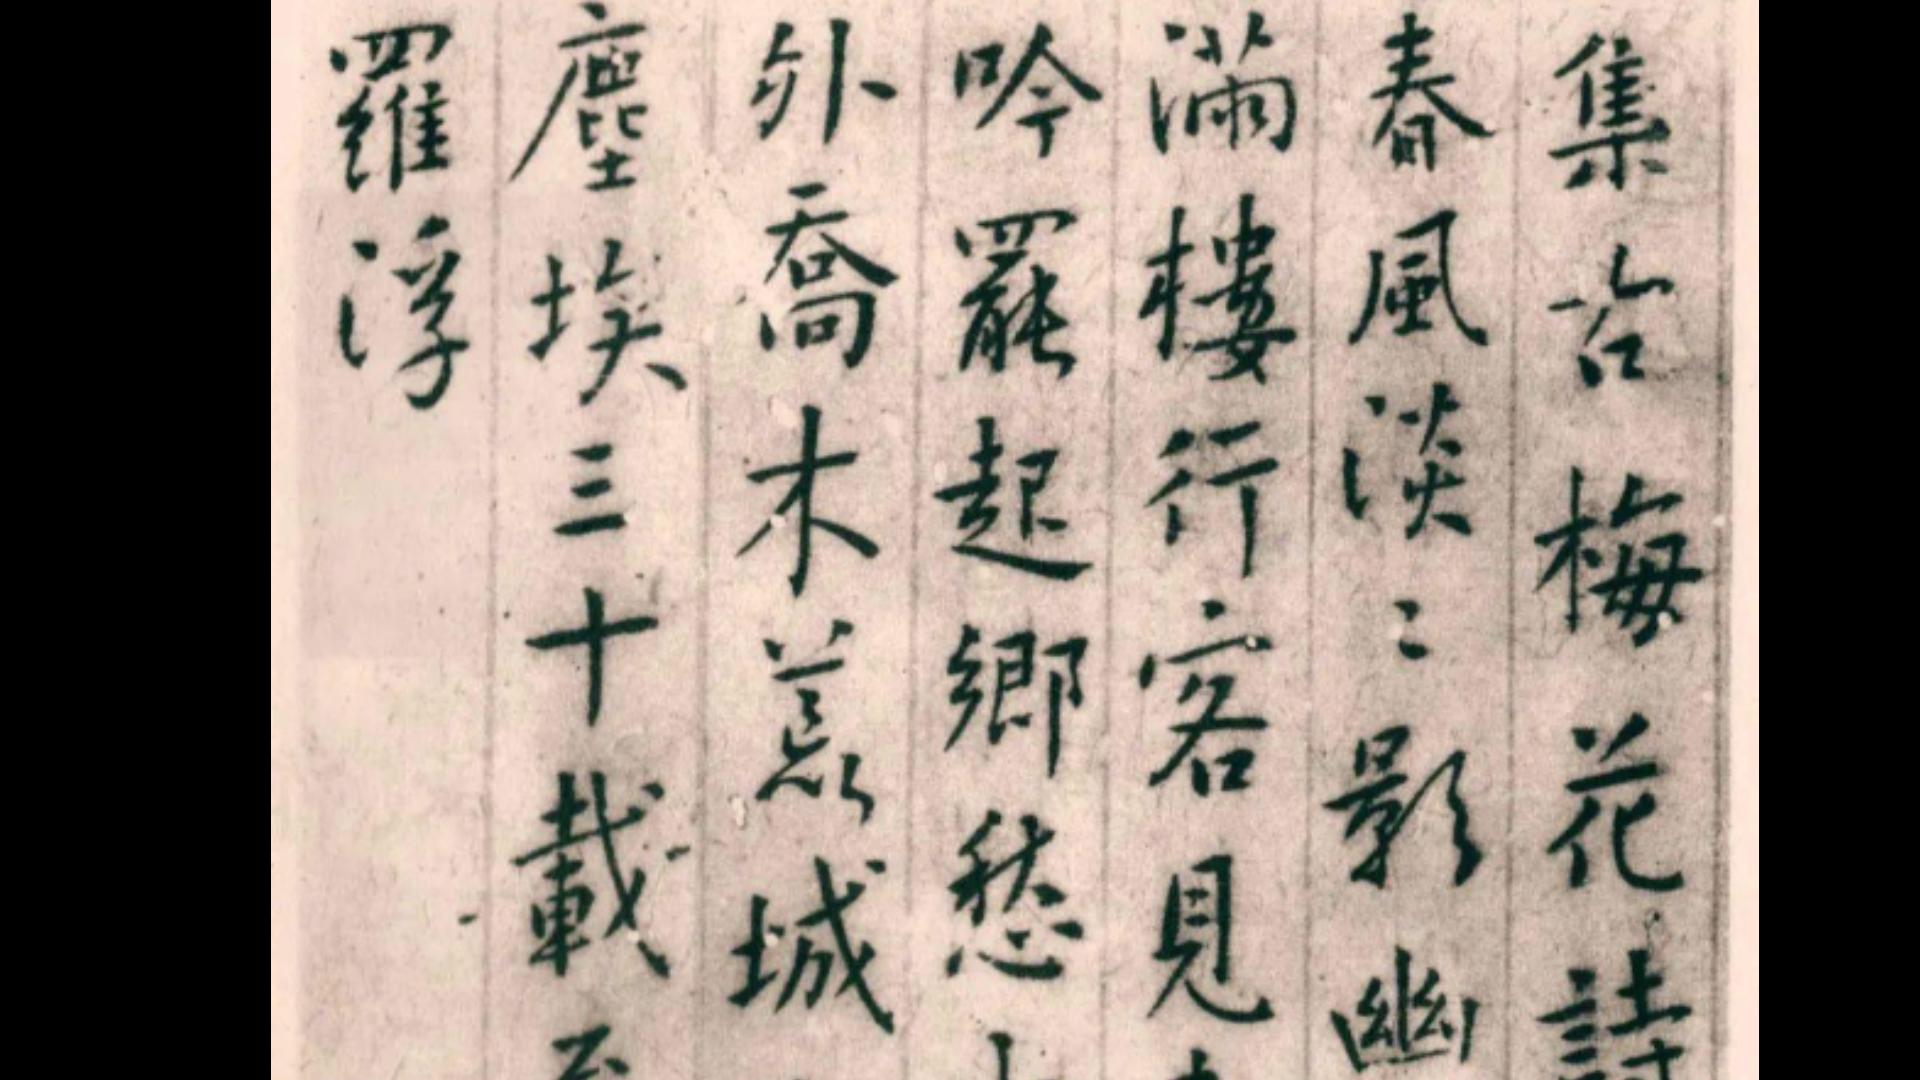 集古梅花詩
春風淡〻影幽
滿樓行客見
吟罷起鄉愁
外喬木荒城
塵埃三十載
羅浮